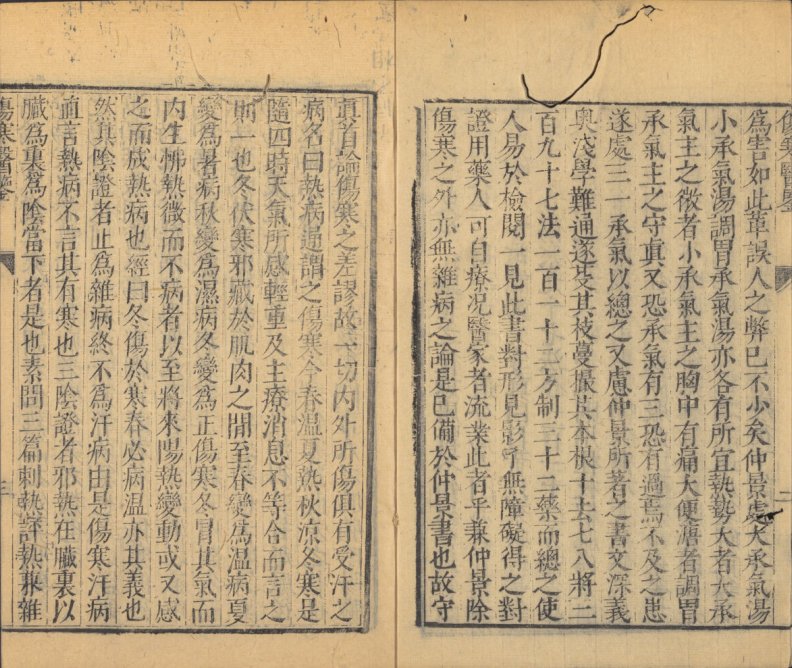 傷寒醫鑒
為害如此革誤人之弊已不少矣仲景處大承氣湯
小承氣湯調胃承氣湯亦各有所宜熱勢大者大承
氣主之微者小承氣主之胸中有痛大便溏者調胃
承氣主之守真又恐承氣有三恐有過焉不及之患
遂處三一承氣以總之又慮仲景所著之書文深義
奥淺學難通遂芟其枝蔓撮其本根十去七八將三
百九十七法一百一十二方制三十二藥而總之使
人易於檢閱一見此書對形見影了無障礙得之對
證用藥人可自療况醫家者流業此者乎兼仲景除
傷寒之外亦無雜病之論是已備於仲景書也故守
二
真首論傷寒之差謬故一切内外所傷俱有受汗之
病名曰熱病通謂之傷寒今春温夏熱秋凉冬寒是
隨四時天氣所感輕重及主療消息不等合而言之
則一也冬伏寒邪藏於肌肉之間至春變為温病夏
變為暑病秋變為濕病冬變為正傷寒冬冒其氣而
内生怫熱微而不病者以至將來陽熱變動或又感
之而成熱病也經曰冬傷於寒春必病温亦其義也
然其陰證者止為雜病終不為汗病由是傷寒汗病
直言熱病不言其有寒也三陰證者邪熱在臟裏以
臟為裏為陰當下者是也素問三篇刺熱評熱兼雜
傷寒醫鑒
三